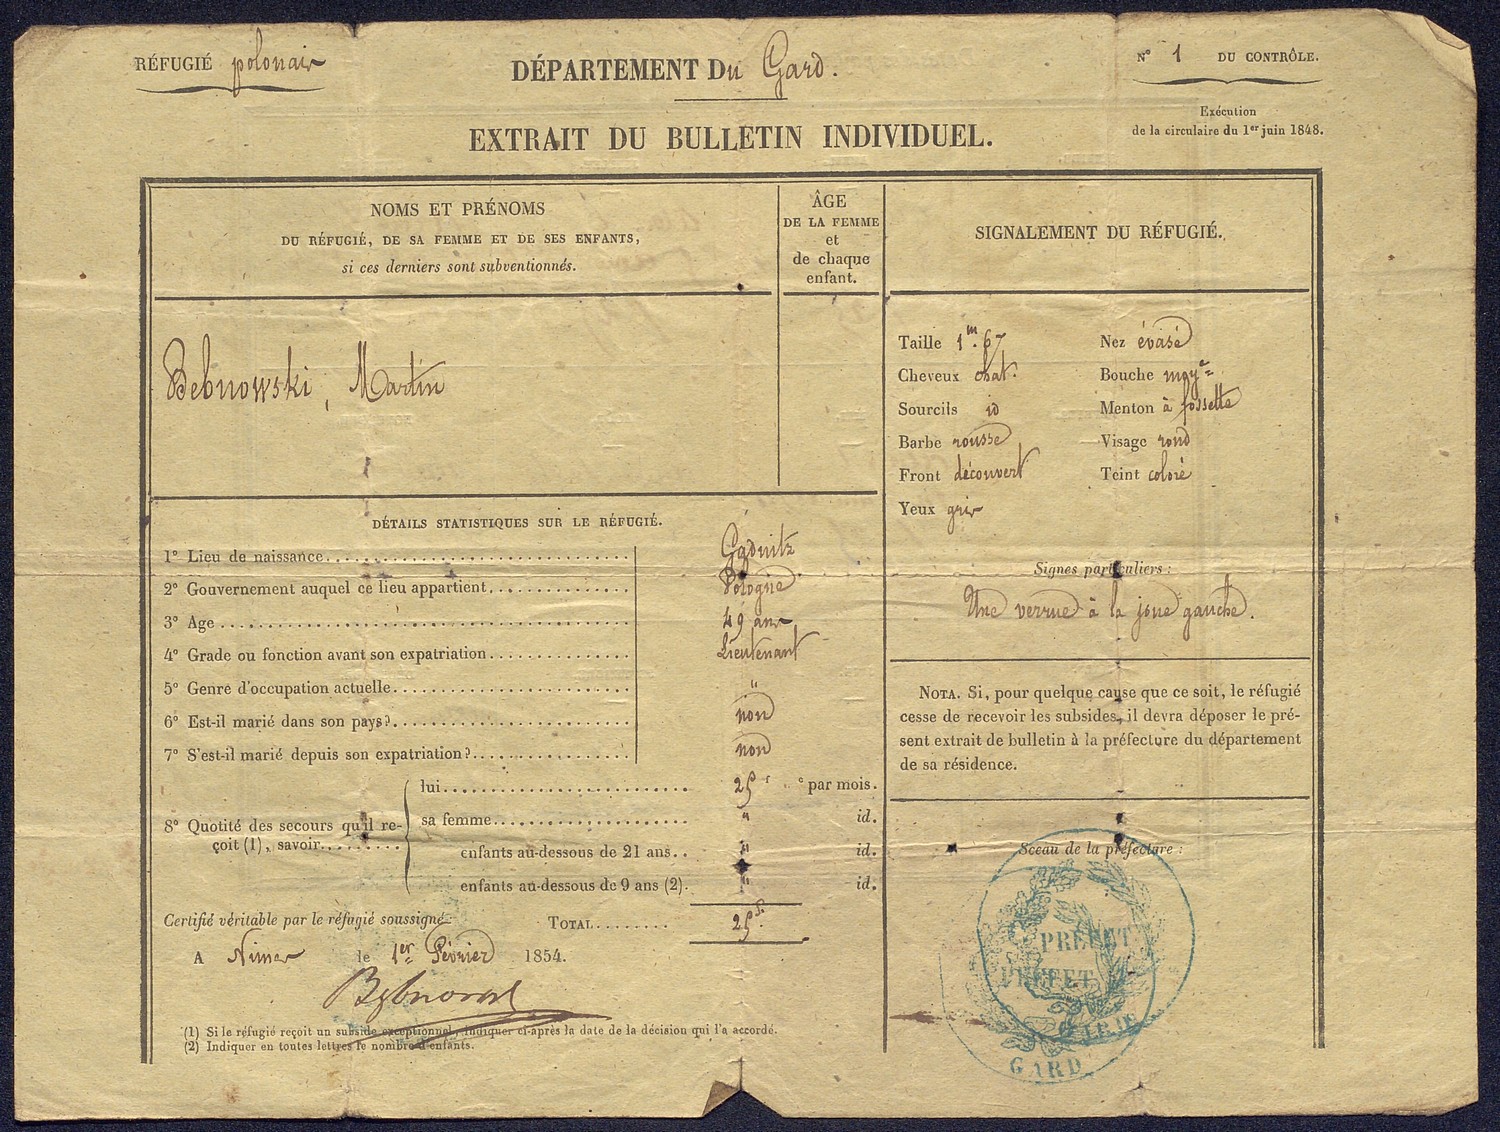 RÉFUGIÉ polonais
DÉPARTEMENT Du Gard.
N° 1 DU CONTRÔLE.
Exécution
de la circulaire du 1er juin 1848.
EXTRAIT DU BULLETIN INDIVIDUEL.
NOMS ET PRÉNOMS
DU RÉFUGIÉ, DE SA FEMME ET DE SES ENFANTS,
si ces derniers sont subventionnés.
ÂGE
DE LA FEMME
et
de chaque
enfant.
SIGNALEMENT DU RÉFUGIÉ.
Bebnowski, Martin
Taille 1m.67 Nez évasé
Cheveux chat. Bouche moye
Sourcils id Menton à fossette
Barbe rousse Visage rond
Front découvert Teint coloré
Yeux gris
Signes particuliers :
Une verrue à la joue gauche.
DÉTAILS STATISTIQUES SUR LE RÉFUGIÉ.
1° Lieu de naissance Gadnitz
2° Gouvernement auquel ce lieu appartient Pologne
3° Age 49 ans
4° Grade ou fonction avant son expatriation Lieutenant
5° Genre d'occupation actuelle "
6° Est-il marié dans son pays? non
7° S'est-il marié depuis son expatriation? non
8° Quotité des secours qu'il reçoit (1), savoir
lui 25 f c par mois.
sa femme " id.
enfants au-dessous de 21 ans.. " id.
enfants au-dessous de 9 ans (2). " id.
Certifié véritable par le réfugié soussigné
TOTAL 25f.
A Nimes le 1er Février 1854.
(1) Si le réfugié reçoit un subside exceptionnel, indiquer ci-après la date de la décision qui l'a accordé.
(2) Indiquer en toutes lettres le nombre d'enfants.
NOTA. Si, pour quelque cause que ce soit, le réfugié
cesse de recevoir les subsides, il devra déposer le pré-
sent extrait de bulletin à la préfecture du département
de sa résidence.
Sceau de la préfecture :
PRÉFET
PRÉFET
GARD